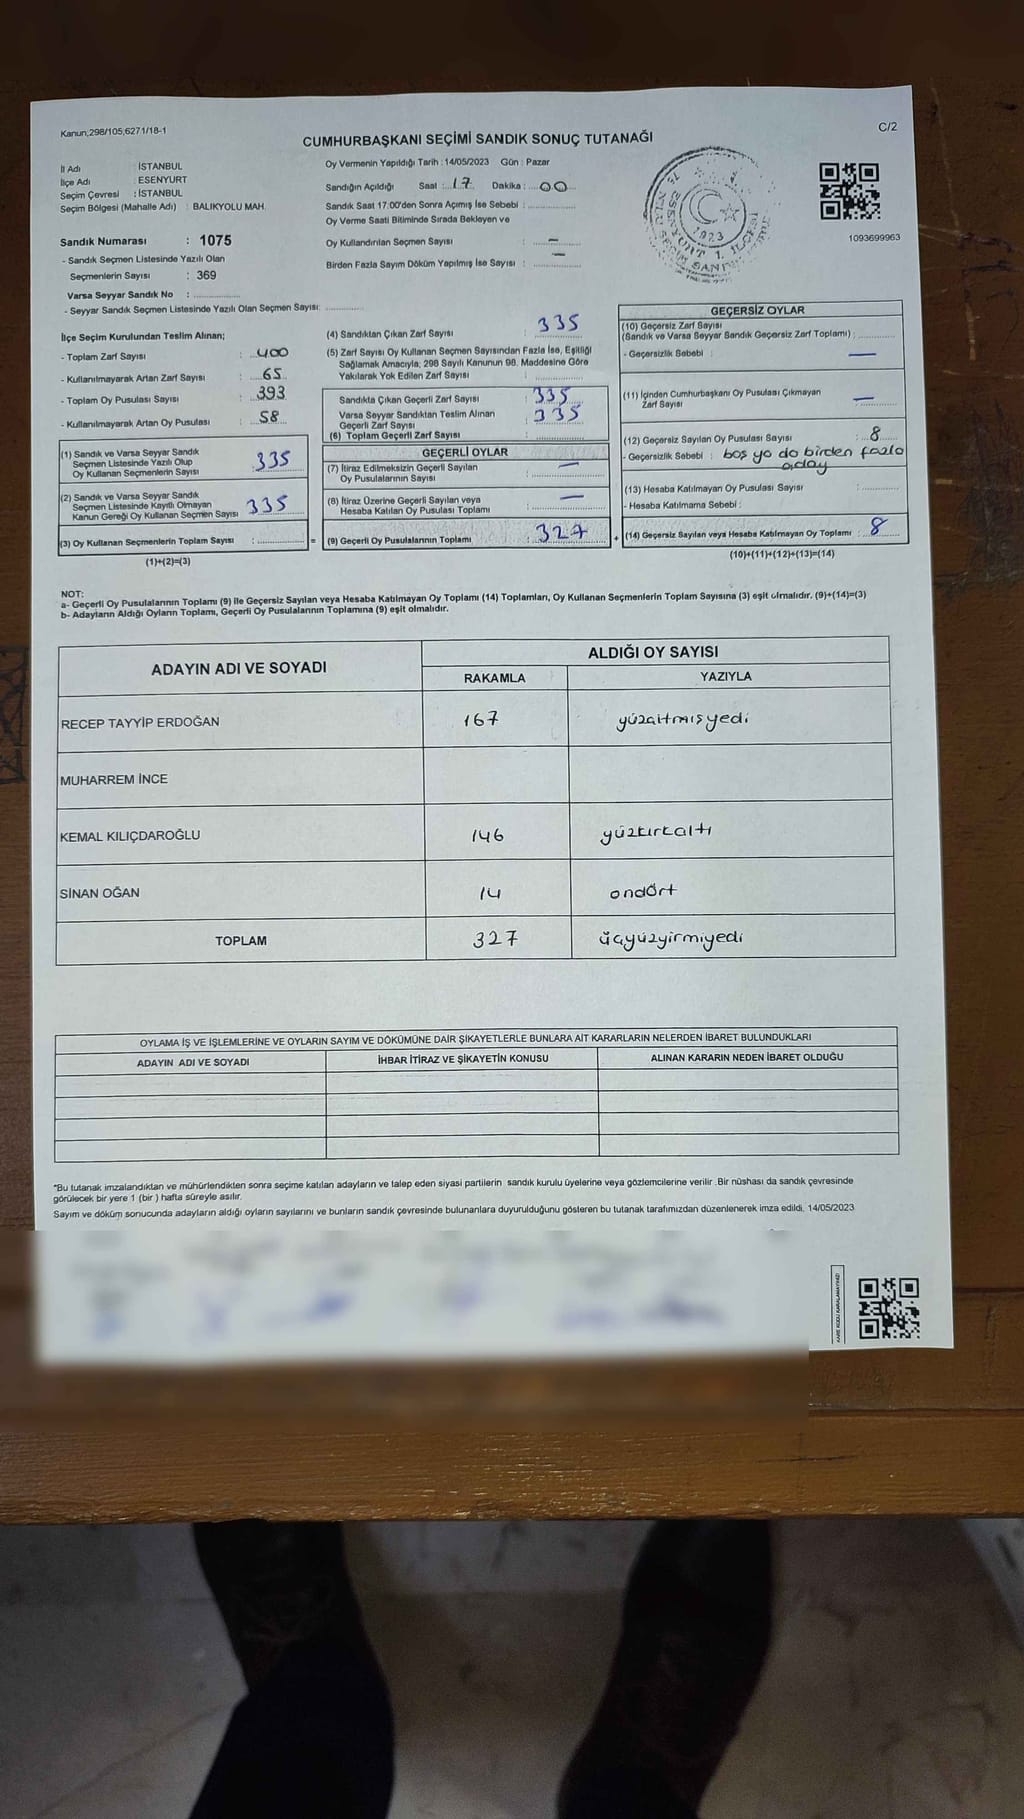 Kanun,298/105,6271/18-1
C/2
CUMHURBAŞKANI SEÇİMİ SANDIK SONUÇ TUTANAĞI
İl Adı : İSTANBUL
İlçe Adı : ESENYURT
Seçim Çevresi : İSTANBUL
Seçim Bölgesi (Mahalle Adı) : BALIKYOLU MAH.
Sandık Numarası : 1075
- Sandık Seçmen Listesinde Yazılı Olan
Seçmenlerin Sayısı : 369
Varsa Seyyar Sandık No :
- Seyyar Sandık Seçmen Listesinde Yazılı Olan Seçmen Sayısı:
Oy Vermenin Yapıldığı Tarih : 14/05/2023 Gün : Pazar
Sandığın Açıldığı Saat : 17 Dakika : 00
Sandık Saat 17:00'den Sonra Açımış İse Sebebi :
Oy Verme Saati Bitiminde Sırada Bekleyen ve
Oy Kullandırılan Seçmen Sayısı : —
Birden Fazla Sayım Döküm Yapılmış İse Sayısı : —
1923
1093699963
İlçe Seçim Kurulundan Teslim Alınan;
- Toplam Zarf Sayısı : 400
- Kullanılmayarak Artan Zarf Sayısı : 65
- Toplam Oy Pusulası Sayısı : 393
- Kullanılmayarak Artan Oy Pusulası : 58
(1) Sandık ve Varsa Seyyar Sandık
Seçmen Listesinde Yazılı Olup
Oy Kullanan Seçmenlerin Sayısı 335
(2) Sandık ve Varsa Seyyar Sandık
Seçmen Listesinde Kayıtlı Olmayan
Kanun Gereği Oy Kullanan Seçmen Sayısı 335
(3) Oy Kullanan Seçmenlerin Toplam Sayısı :
(1)+(2)=(3)
(4) Sandıktan Çıkan Zarf Sayısı : 335
(5) Zarf Sayısı Oy Kullanan Seçmen Sayısından Fazla İse, Eşitliği
Sağlamak Amacıyla, 298 Sayılı Kanunun 98. Maddesine Göre
Yakılarak Yok Edilen Zarf Sayısı :
Sandıkta Çıkan Geçerli Zarf Sayısı : 335
Varsa Seyyar Sandıktan Teslim Alınan
Geçerli Zarf Sayısı : 335
(6) Toplam Geçerli Zarf Sayısı :
GEÇERLİ OYLAR
(7) İtiraz Edilmeksizin Geçerli Sayılan
Oy Pusulalarının Sayısı : —
(8) İtiraz Üzerine Geçerli Sayılan veya
Hesaba Katılan Oy Pusulası Toplamı : —
= (9) Geçerli Oy Pusulalarının Toplamı : 327
GEÇERSİZ OYLAR
(10) Geçersiz Zarf Sayısı
(Sandık ve Varsa Seyyar Sandık Geçersiz Zarf Toplamı) :
- Geçersizlik Sebebi : —
(11) İçinden Cumhurbaşkanı Oy Pusulası Çıkmayan
Zarf Sayısı : —
(12) Geçersiz Sayılan Oy Pusulası Sayısı : 8
- Geçersizlik Sebebi : boş ya da birden fazla
aday
(13) Hesaba Katılmayan Oy Pusulası Sayısı :
- Hesaba Katılmama Sebebi :
+ (14) Geçersiz Sayılan veya Hesaba Katılmayan Oy Toplamı : 8
(10)+(11)+(12)+(13)=(14)
NOT:
a- Geçerli Oy Pusulalarının Toplamı (9) ile Geçersiz Sayılan veya Hesaba Katılmayan Oy Toplamı (14) Toplamları, Oy Kullanan Seçmenlerin Toplam Sayısına (3) eşit olmalıdır. (9)+(14)=(3)
b- Adayların Aldığı Oyların Toplamı, Geçerli Oy Pusulalarının Toplamına (9) eşit olmalıdır.
ADAYIN ADI VE SOYADI
ALDIĞI OY SAYISI
RAKAMLA YAZIYLA
RECEP TAYYİP ERDOĞAN 167 yüzaltmışyedi
MUHARREM İNCE
KEMAL KILIÇDAROĞLU 146 yüzkırkaltı
SİNAN OĞAN 14 ondört
TOPLAM 327 üçyüzyirmiyedi
OYLAMA İŞ VE İŞLEMLERİNE VE OYLARIN SAYIM VE DÖKÜMÜNE DAİR ŞİKAYETLERLE BUNLARA AİT KARARLARIN NELERDEN İBARET BULUNDUKLARI
ADAYIN ADI VE SOYADI İHBAR İTİRAZ VE ŞİKAYETİN KONUSU ALINAN KARARIN NEDEN İBARET OLDUĞU
*Bu tutanak imzalandıktan ve mühürlendikten sonra seçime katılan adayların ve talep eden siyasi partilerin sandık kurulu üyelerine veya gözlemcilerine verilir .Bir nüshası da sandık çevresinde
görülecek bir yere 1 (bir ) hafta süreyle asılır.
Sayım ve döküm sonucunda adayların aldığı oyların sayılarını ve bunların sandık çevresinde bulunanlara duyurulduğunu gösteren bu tutanak tarafımızdan düzenlenerek imza edildi. 14/05/2023
KARE KODU KARALAMAYINIZ!